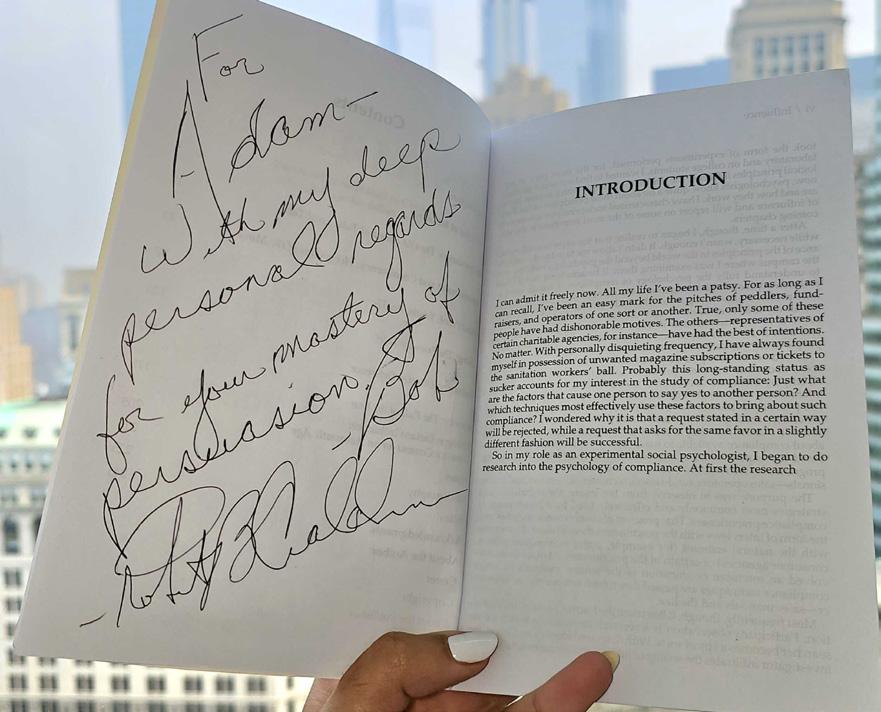 For
Adam—
With my deep
personal regards
for your mastery of
persuasion,
—Bob
—Robert B Cialdini
Contents
vi / Influence
INTRODUCTION
I can admit it freely now. All my life I've been a patsy. For as long as I
can recall, I've been an easy mark for the pitches of peddlers, fund-
raisers, and operators of one sort or another. True, only some of these
people have had dishonorable motives. The others—representatives of
certain charitable agencies, for instance—have had the best of intentions.
No matter. With personally disquieting frequency, I have always found
myself in possession of unwanted magazine subscriptions or tickets to
the sanitation workers' ball. Probably this long-standing status as
sucker accounts for my interest in the study of compliance: Just what
are the factors that cause one person to say yes to another person? And
which techniques most effectively use these factors to bring about such
compliance? I wondered why it is that a request stated in a certain way
will be rejected, while a request that asks for the same favor in a slightly
different fashion will be successful.
So in my role as an experimental social psychologist, I began to do
research into the psychology of compliance. At first the research